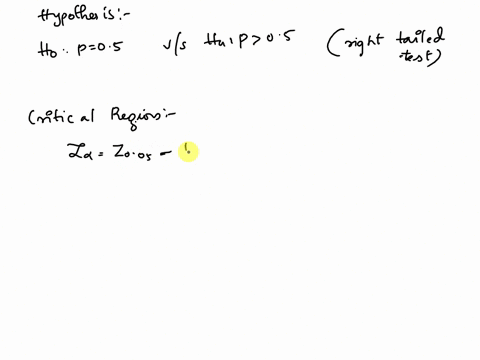 Hypothesis:-
H0: p=0.5 v/s Ha: p>0.5 (right tailed test)
Critical Region:-
Zα = Z0.05 -